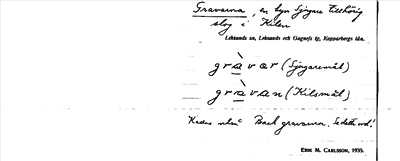 Gravarna, en byn Sjugare tillhörig
slog i Kilen
Leksands sn, Leksands och Gagnefs tg, Kopparbergs län.
gràvar (Sjugaremål)
gràvan (Kilsmål)
Back gravarna. Se detta ord!
ERIK M. CARLSSON, 1935.